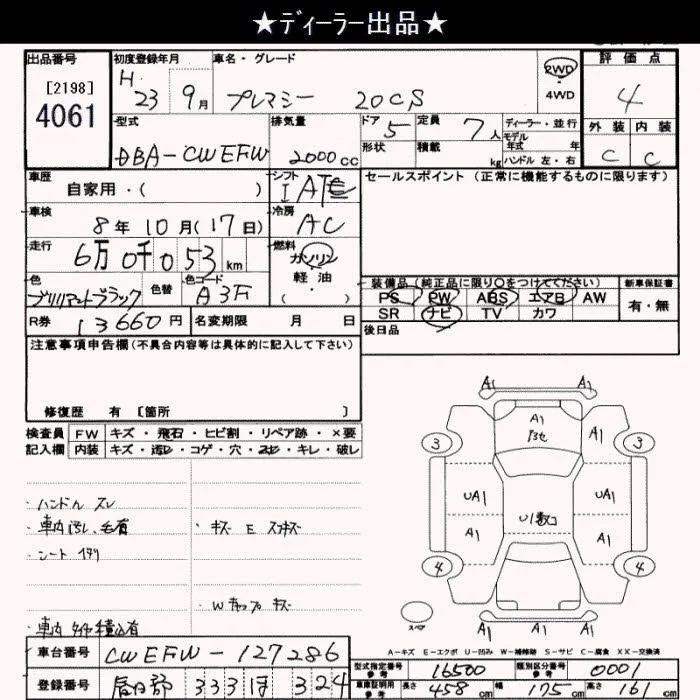 ★ディーラー出品★
出品番号
[2198]
4061
初度登録年月
H. 23 9月
車名・グレード
プレマシー 20CS
2WD
4WD
評価点
4
外装 内装
C C
型式
DBA-CWEFW
排気量
2000cc
ドア 5
形状
定員 7人
積載 kg
ディーラー・並行
モデル年式 年
ハンドル 左・右
車歴
自家用・( )
シフト
IAT
車検
8年10月(17日)
冷房
AC
走行
6万0千053km
燃料
ガソリン
軽油
( )
色
ブリリアントブラック
色替
色コード
A3F
R券 13660円
名変期限 月 日
セールスポイント(正常に機能するものに限ります)
装備品(純正品に限り○をつけてください)
PS PW ABS エアB AW
SR ナビ TV カワ
新車保証書
有・無
後日品
注意事項申告欄(不具合内容等は具体的に記入して下さい)
修復歴 有 [箇所 ]
検査員記入欄
FW キズ・飛石・ヒビ割・リペア跡・×要
内装 キズ・汚レ・コゲ・穴・スレ・キレ・破レ
・ハンドル スレ
・車内汚レ、毛有
・シート
・キズ E
・Wキャップ キズ
・車内 タイヤ積込有
A1 A1
A1
A1
3 3
UA1 UA1
U1数コ
A1 A1
4 4
スペア
A1 A1
A-キズ E-エクボ U-凹み W-補修跡 S-サビ C-腐食 XX-交換済
車台番号 CWEFW-127286
登録番号 春日部 333 ほ 324
型式指定番号 参考 16500
類別区分番号 参考 0001
車庫証明用 参考 長さ 458cm 幅 175cm 高さ 161cm